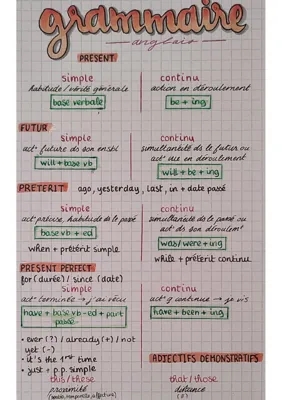 grammaire
anglais
PRESENT
simple
habitude/vérité générale
base verbale
continu
action en déroulement
be + ing
FUTUR
simple
act° future ds son ensbl
will + base vb
continu
simultanéité de le futur ou
act° vue en déroulement
will + be + ing
PRETERIT ago, yesterday, last, in + date passé
simple
act° précise, habitude de le passé
base vb + ed
when + prétérit simple
continu
simultanéité de le passé ou
act° ds son déroulemt
was/were + ing
while + prétérit continu
PRESENT PERFECT
for (durée) / since (date)
simple
act° terminée → j'ai vécu
have + base vb -ed + part
passé
continu
act° continue → je vis
have + been + ing
• ever (?) / already (+) / not
yet (-)
• it's the 1st time
• just + p.p. simple
ADJECTIFS DEMONSTRATIFS
this/these
proximité
that/those
distance